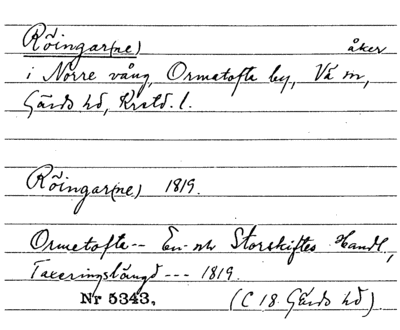 Röingar(ne) åker
i Norre vång, Ormatofta by, Vä sn,
Gärds hd, Krstd. l.
Röingar(ne) 1819.
Ormetofta -- En- Storskiftes Handl,
Taxeringslängd --- 1819.
Nr 5343, (C 18 Gärds hd)